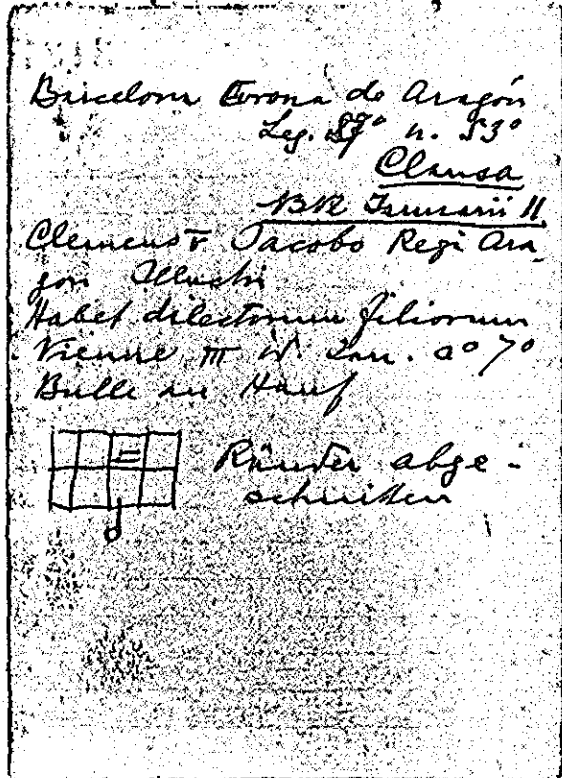 Barcelona Corona de Aragón
Leg. n. 53°
Clausa
Januarii 11
Clemens V Jacobo Regi Ara-
gon
Habet dilectorum filiorum
Vienne III Jan. a° 7°
Bulle an Hanf
Ränder abge-
schnitten